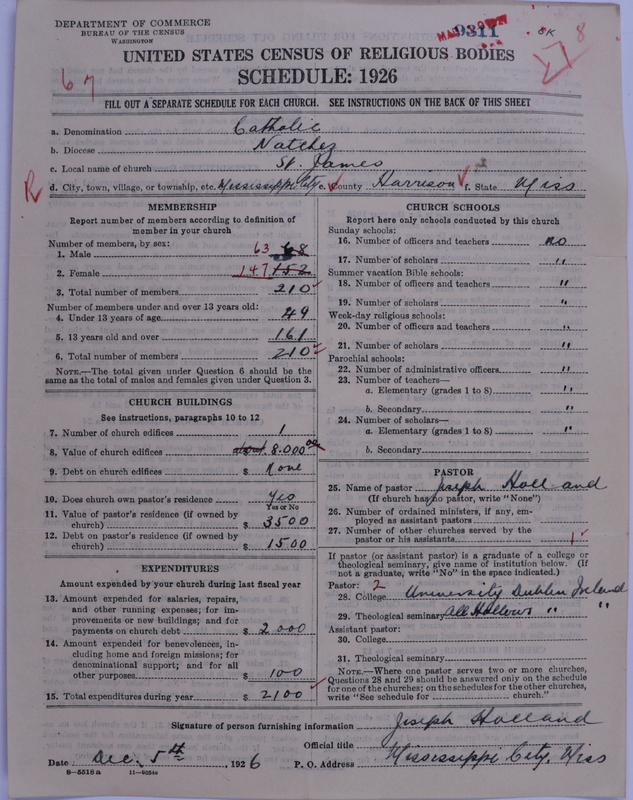 DEPARTMENT OF COMMERCE
BUREAU OF THE CENSUS
WASHINGTON
9311
8K
8
67
UNITED STATES CENSUS OF RELIGIOUS BODIES
SCHEDULE: 1926
FILL OUT A SEPARATE SCHEDULE FOR EACH CHURCH. SEE INSTRUCTIONS ON THE BACK OF THIS SHEET
a. Denomination Catholic
b. Diocese Natchez
c. Local name of church St. James
R d. City, town, village, or township, etc. Mississippi City e. County Harrison f. State Miss
MEMBERSHIP
Report number of members according to definition of
member in your church
Number of members, by sex:
1. Male 63 68
2. Female 147 152
3. Total number of members 210
Number of members under and over 13 years old:
4. Under 13 years of age 49
5. 13 years old and over 161
6. Total number of members 210
NOTE.—The total given under Question 6 should be the
same as the total of males and females given under Question 3.
CHURCH BUILDINGS
See instructions, paragraphs 10 to 12
7. Number of church edifices 1
8. Value of church edifices about 8.000 00
9. Debt on church edifices $ None
10. Does church own pastor's residence Yes
Yes or No
11. Value of pastor's residence (if owned by
church) $ 3500
12. Debt on pastor's residence (if owned by
church) $ 1500
EXPENDITURES
Amount expended by your church during last fiscal year
13. Amount expended for salaries, repairs,
and other running expenses; for im-
provements or new buildings; and for
payments on church debt $ 2000
14. Amount expended for benevolences, in-
cluding home and foreign missions; for
denominational support; and for all
other purposes $ 100
15. Total expenditures during year $ 2100
CHURCH SCHOOLS
Report here only schools conducted by this church
Sunday schools:
16. Number of officers and teachers no
17. Number of scholars "
Summer vacation Bible schools:
18. Number of officers and teachers "
19. Number of scholars "
Week-day religious schools:
20. Number of officers and teachers "
21. Number of scholars "
Parochial schools:
22. Number of administrative officers "
23. Number of teachers—
a. Elementary (grades 1 to 8) "
b. Secondary "
24. Number of scholars—
a. Elementary (grades 1 to 8) "
b. Secondary
PASTOR
25. Name of pastor Joseph Holland
(If church has no pastor, write "None")
26. Number of ordained ministers, if any, em-
ployed as assistant pastors
27. Number of other churches served by the
pastor or his assistants 1
If pastor (or assistant pastor) is a graduate of a college or
theological seminary, give name of institution below. (If
not a graduate, write "No" in the space indicated.)
Pastor: 2
28. College University Dublin Ireland
29. Theological seminary All Hallows " "
Assistant pastor:
30. College
31. Theological seminary
NOTE.—Where one pastor serves two or more churches,
Questions 28 and 29 should be answered only on the schedule
for one of the churches; on the schedules for the other churches,
write "See schedule for church."
Signature of person furnishing information Joseph Holland
Official title
Date Dec. 5th, 1926 P. O. Address Mississippi City, Miss
8—5518a 11—9054a